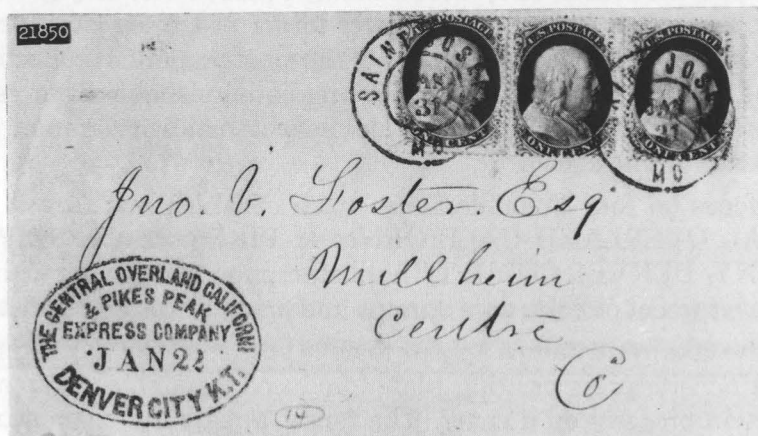 21850
U.S. POSTAGE U.S. POSTAGE
ONE CENT ONE CENT ONE CENT
SAINT JOSEPH
JAN
31
MO
JOSE
JAN
31
MO
Jno. V. Foster. Esq
Millheim
Centre
Co
THE CENTRAL OVERLAND CALIFORNI
& PIKES PEAK
EXPRESS COMPANY
JAN 22
DENVER CITY K.T.
14